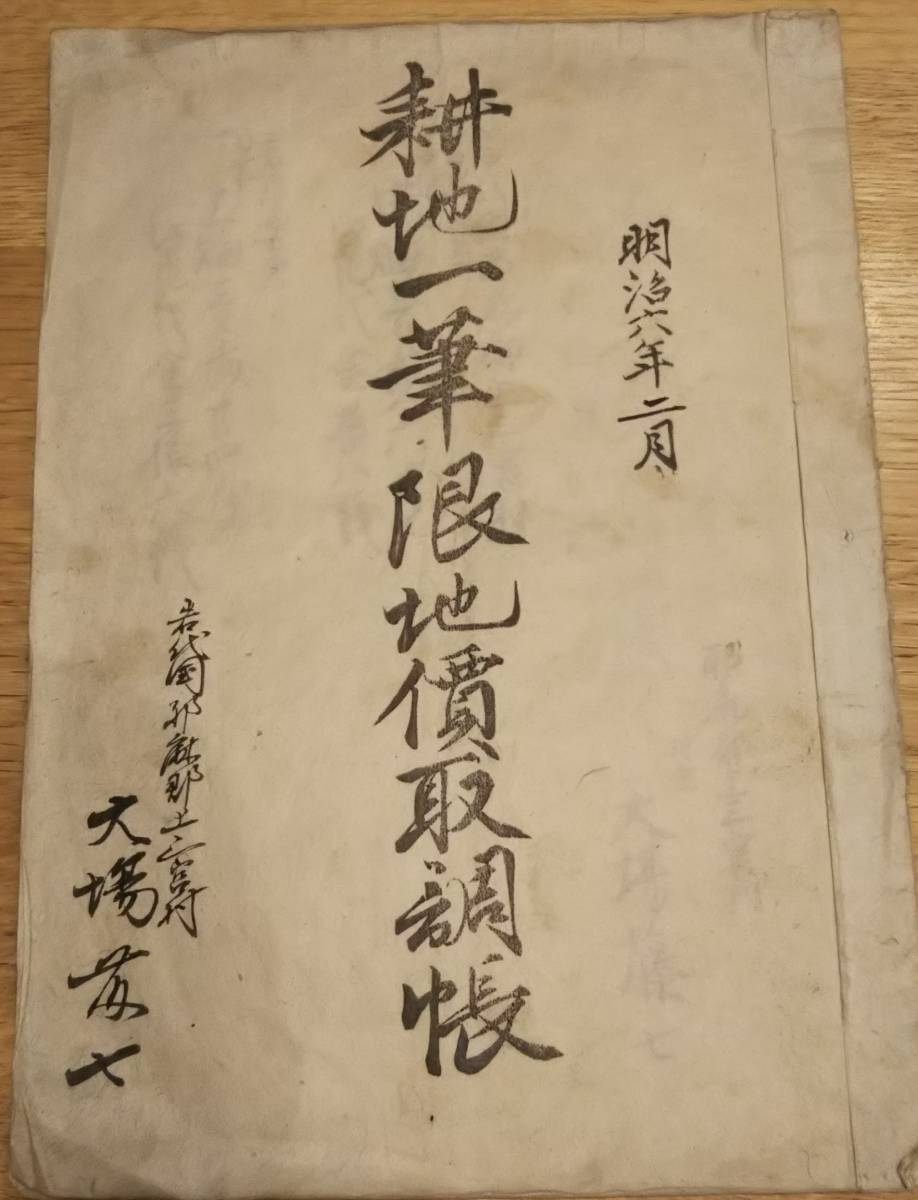 明治六年二月
耕地一筆限地價取調帳
岩代国耶麻郡上三宮村
大場藤七